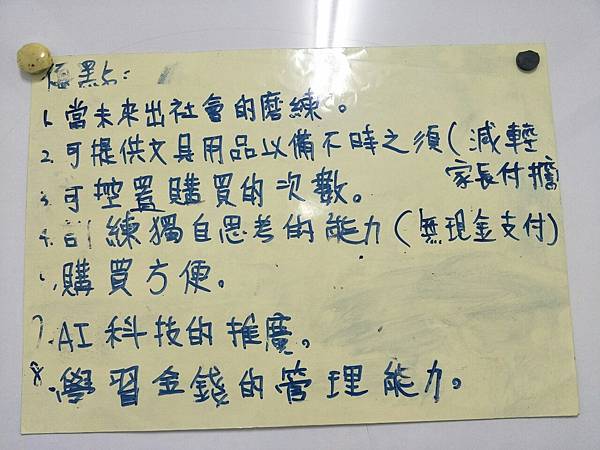 優點:
1. 當未來出社會的磨練。
2. 可提供文具用品以備不時之須(減輕
家長付擔
3. 可控置購買的次數。
4. 訓練獨自思考的能力(無現金支付)
購買方便。
7. AI科技的推廣。
8. 學習金錢的管理能力。